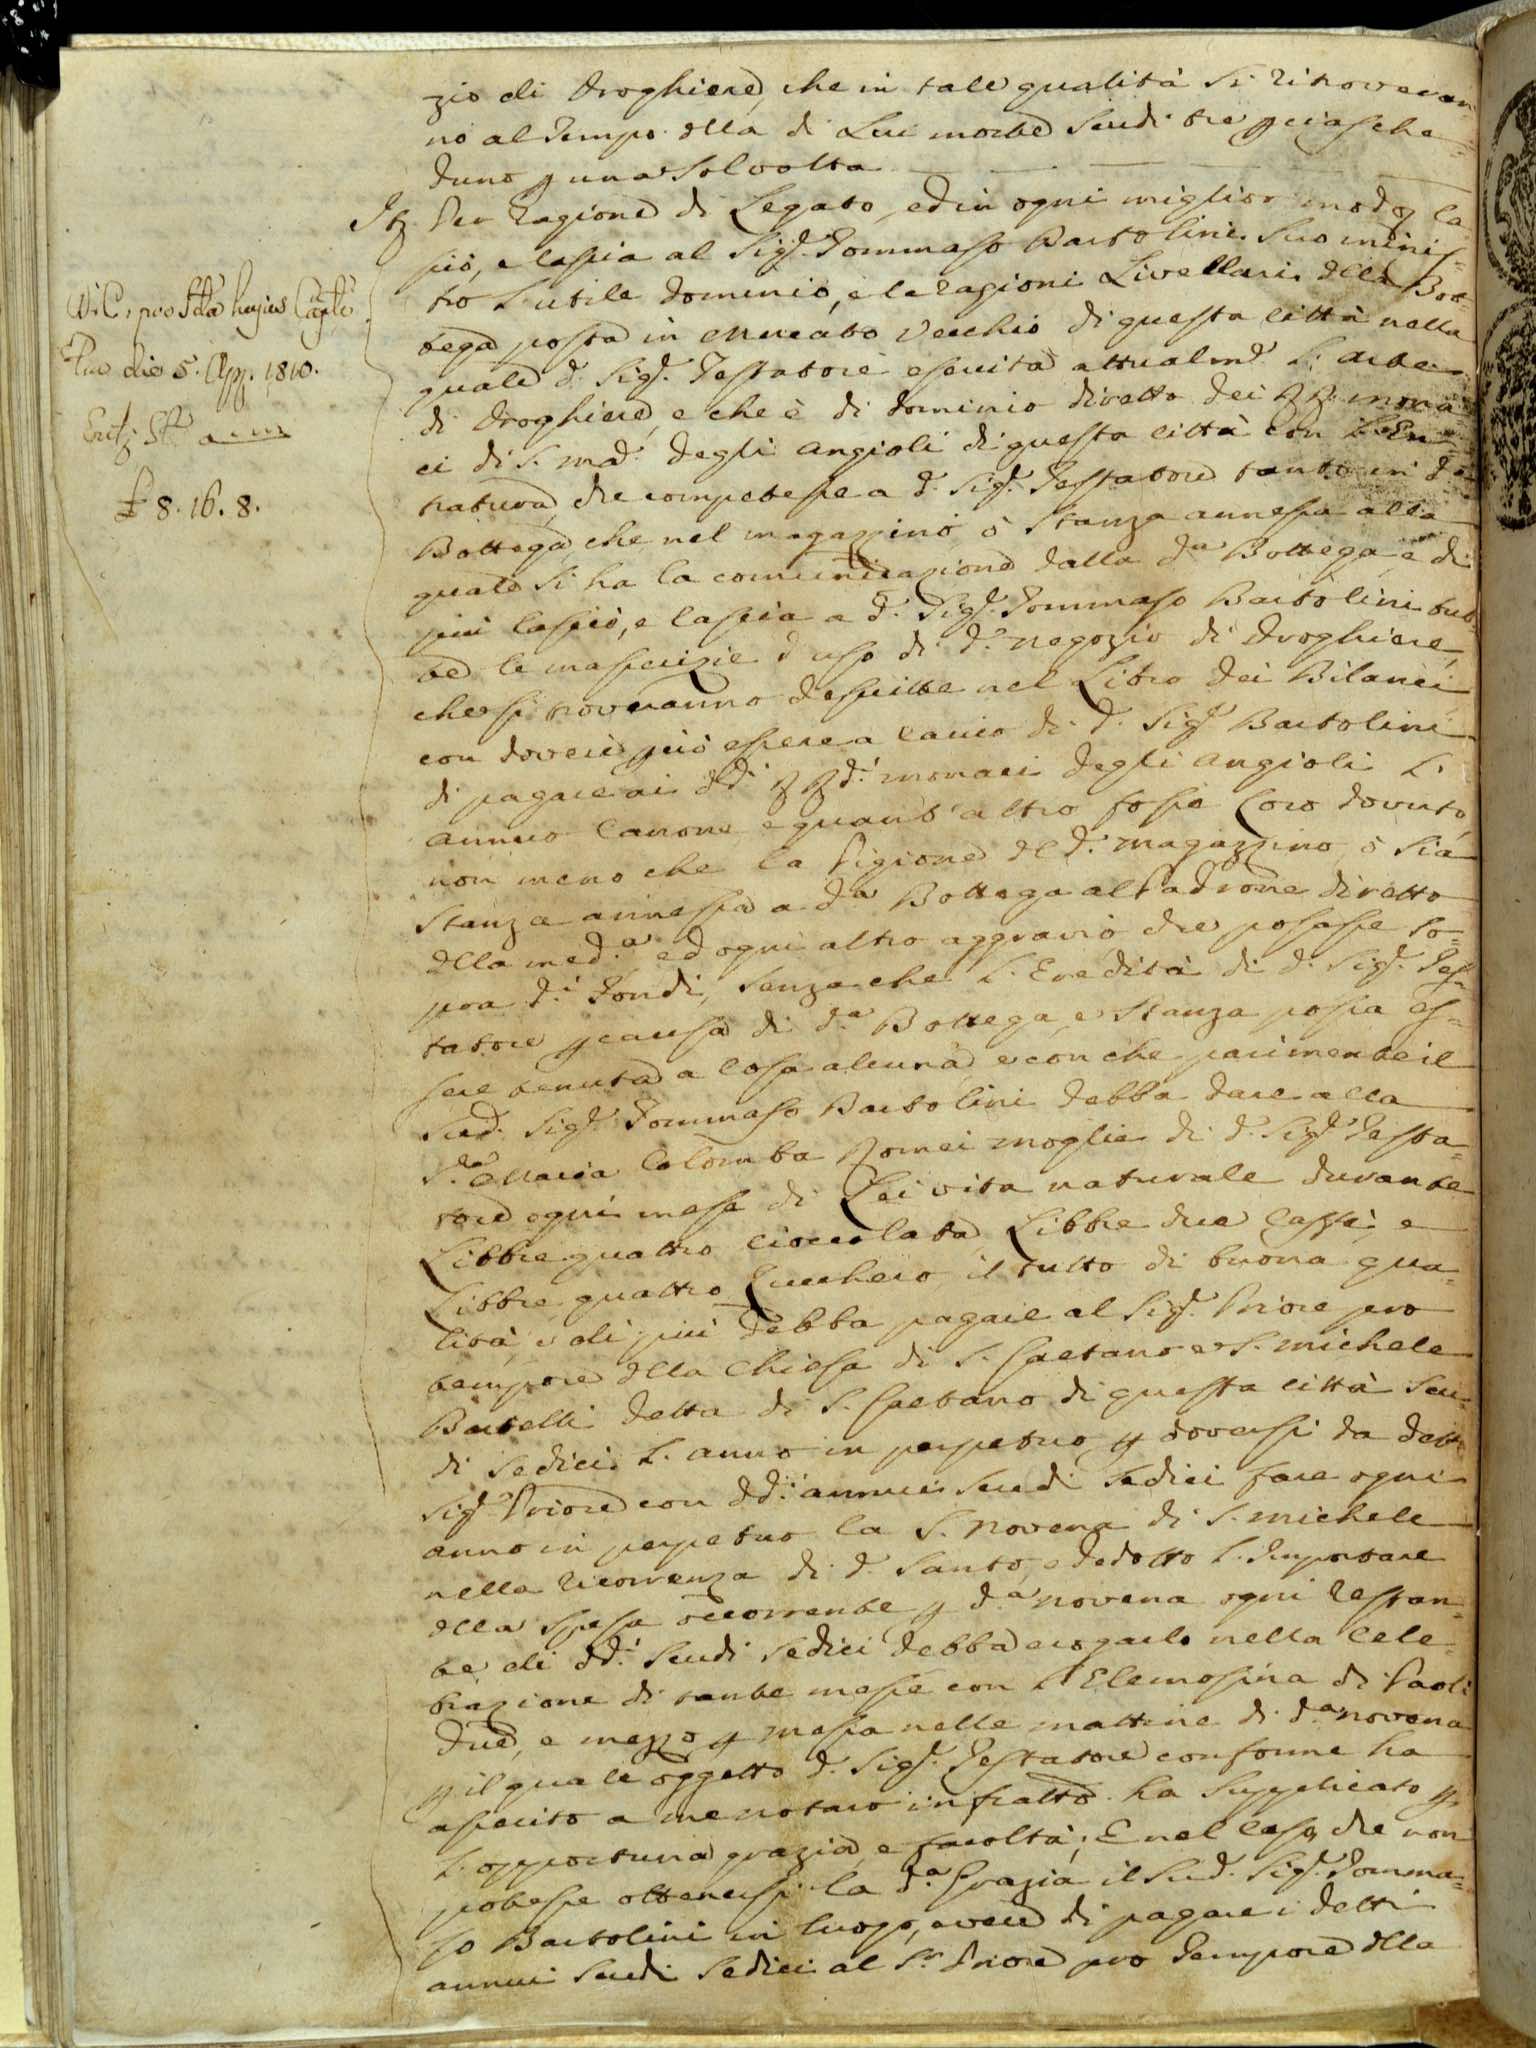 zio di Droghiere, che in tale qualità si ritroveran
no al Tempo della di Lui morte Scudi tre p ciasche=
duno p una sol volta
Itz Per ragione di Legato, ed in ogni miglior modo la
sciò, e lascia al Sig.e Tommaso Bartolini suo minis=
tro L'utile dominio, e le ragioni Livellari della Bot=
tega posta in Mercato Vecchio di questa Città nella
quale d. Sig.e Testatore esercita attualm.e L'arte
di Droghiere, e che è di dominio diretto dei RR. mona
ci di S. Ma. degli Angioli di questa Città con L'En=
tratura, che competesse a d. Sig.e Testatore tanto in da
Bottega, che nel magazzino, ò Stanza annessa alla
quale si ha la comunicazione dalla da Bottega, e di
più lasciò, e lascia a d. Sig.e Tommaso Bartolini tut=
te le masserizie d'uso di d. negozio di Droghiere,
che si troveranno descritte nel Libro dei Bilanci
con doversi però essere a carico di d. Sig.e Bartolini
di pagare ai dd.i RR. di monaci degli Angioli L'
annuo Canone, e quant'altro fosse loro dovuto,
non meno che la Pigione del d. magazzino, ò sia
Stanza annessa a da Bottega al Padrone diretto
della med.a ed ogni altro aggravio, che posasse so=
pra d.i Fondi, senza che L'Eredità di d. Sig.e Tes=
tatore p causa di d.a Bottega, e Stanza possa es=
sere tenuta a cosa alcuna, e con che parimente il
Sud. Sig.e Tommaso Bartolini debba dare alla
S.ra Maria Colomba Romei moglie di d. Sig.e Testa=
tore ogni mese di Lei vita naturale durante
Libbre quattro cioccolata, Libbre due Caffè, e
Libbre quattro Zucchero il tutto di buona qua=
lità, e di più debba pagare al Sig.e Priore pro
tempore della Chiesa di S. Gaetano e S. Michele
Bertelli detta di S. Gaetano di questa Città Scu=
di Sedici L'anno in perpetuo, p doversi da detto
Sig.e Priore con dd.i annui Scudi Sedici fare ogni
anno in perpetuo la S. Novena di S. Michele
nella ricorrenza di d. Santo, e dedotto L'importare
della spesa occorrente p d.a novena ogni restan=
te di dd.i Scudi Sedici debba erogarlo nella cele=
brazione di tante messe con L'Elemosina di Paoli
due, e mezzo p messa nelle mattine di d.a novena
p il quale oggetto d. Sig.e Testatore conforme ha
asserito a me notaro infratto ha supplicato p
L'opportuna grazia, e facoltà; E nel caso, che non
potesse ottenersi la d.a Grazia il Sud. Sig.e Tomma=
so Bartolini in luogo, avere di pagare i detti
annui Scudi Sedici al S.r Priore pro Tempore della
die 5. 1810.
£ 8. 16. 8.